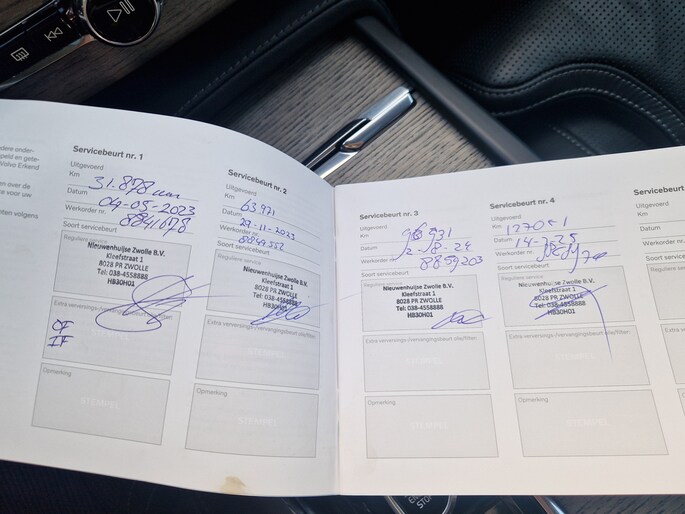 Volvo Erkend
Servicebeurt nr. 1
Uitgevoerd
Km
31.878 km
Datum
04-05-2023
Werkorder nr.
8841678
Soort servicebeurt
Reguliere service
Nieuwenhuijse Zwolle B.V.
Kleefstraat 1
8028 PR ZWOLLE
Tel: 038-4558888
HB30H01
Extra verversings-/vervangingsbeurt olie/filter
CF
IF
Opmerking
STEMPEL
Servicebeurt nr. 2
Uitgevoerd
Km
63.971
Datum
29-11-2023
Werkorder nr.
Soort servicebeurt
Reguliere service
Nieuwenhuijse Zwolle B.V.
Kleefstraat 1
8028 PR ZWOLLE
Tel: 038-4558888
HB30H01
Extra verversings-/vervangingsbeurt olie/filter
Opmerking
STEMPEL
Servicebeurt nr. 3
Uitgevoerd
Km
Datum
Werkorder nr.
8859203
Soort servicebeurt
Reguliere service
Nieuwenhuijse Zwolle B.V.
Kleefstraat 1
8028 PR ZWOLLE
Tel: 038-4558888
HB30H01
Extra verversings-/vervangingsbeurt olie/filter
Opmerking
STEMPEL
Servicebeurt nr. 4
Uitgevoerd
Km
Datum
Werkorder nr.
Soort servicebeurt
Reguliere service
Nieuwenhuijse Zwolle B.V.
Kleefstraat 1
8028 PR ZWOLLE
Tel: 038-4558888
HB30H01
Extra verversings-/vervangingsbeurt olie/filter
Opmerking
STEMPEL
Servicebeurt
Uitgevoerd
Km
Datum
Werkorder nr.
Soort service
Reguliere service
Opmerking
STOP